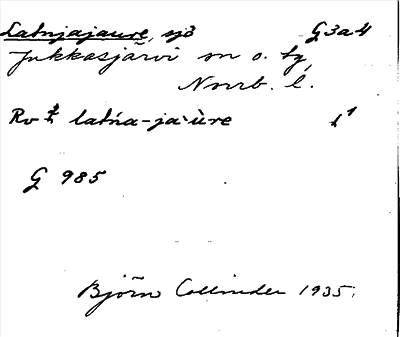 Latnjajaure, sjö G3a4
Jukkasjärvi sn o. tg,
Norrb. l.
Rv latńa-ja·ùre
G 985
Björn Collinder 1935.